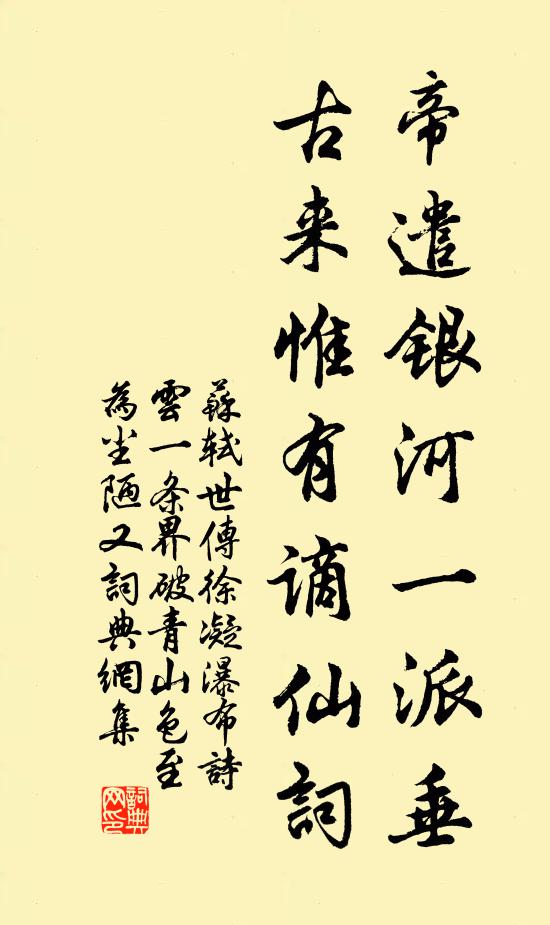 帝遣銀河一派垂
古来惟有谪仙詞
蘇軾世傳徐凝瀑布詩
雲一条界破青山色至
為尘陋又詞典網集
詞典网印